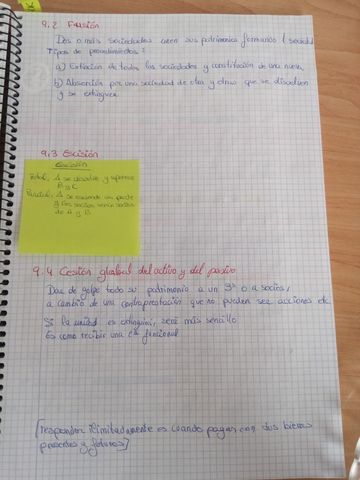 9.2 Fusión
Dos o más sociedades unen sus patrimonios formando 1 sociedad
Tipos de procedimientos:
a) Extinción de todas las sociedades y constitución de una nueva
b) Absorción por una sociedad de otra y otras que se disuelven
y se extinguen
9.3 Escisión
Escisión
Total: A se disuelve y aparece
B y C
Parcial: A se escinde una parte
y los socios serán socios
de A y B
9.4 Cestión global del activo y del pasivo
Dar de golpe todo su patrimonio a un 3º o a socios,
a cambio de una contraprestación que no pueden ser acciones etc
Si la unidad es extinguir, será más sencillo
Es como recibir una funcional
[responder ilimitadamente es cuando pagan con sus bienes
presentes y futuros]